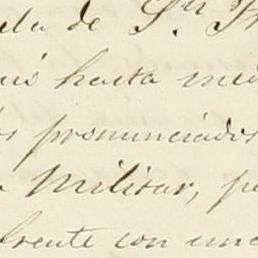 ela de Sn. F
uió hasta med
os pronunciados
Militar, p
frente con un